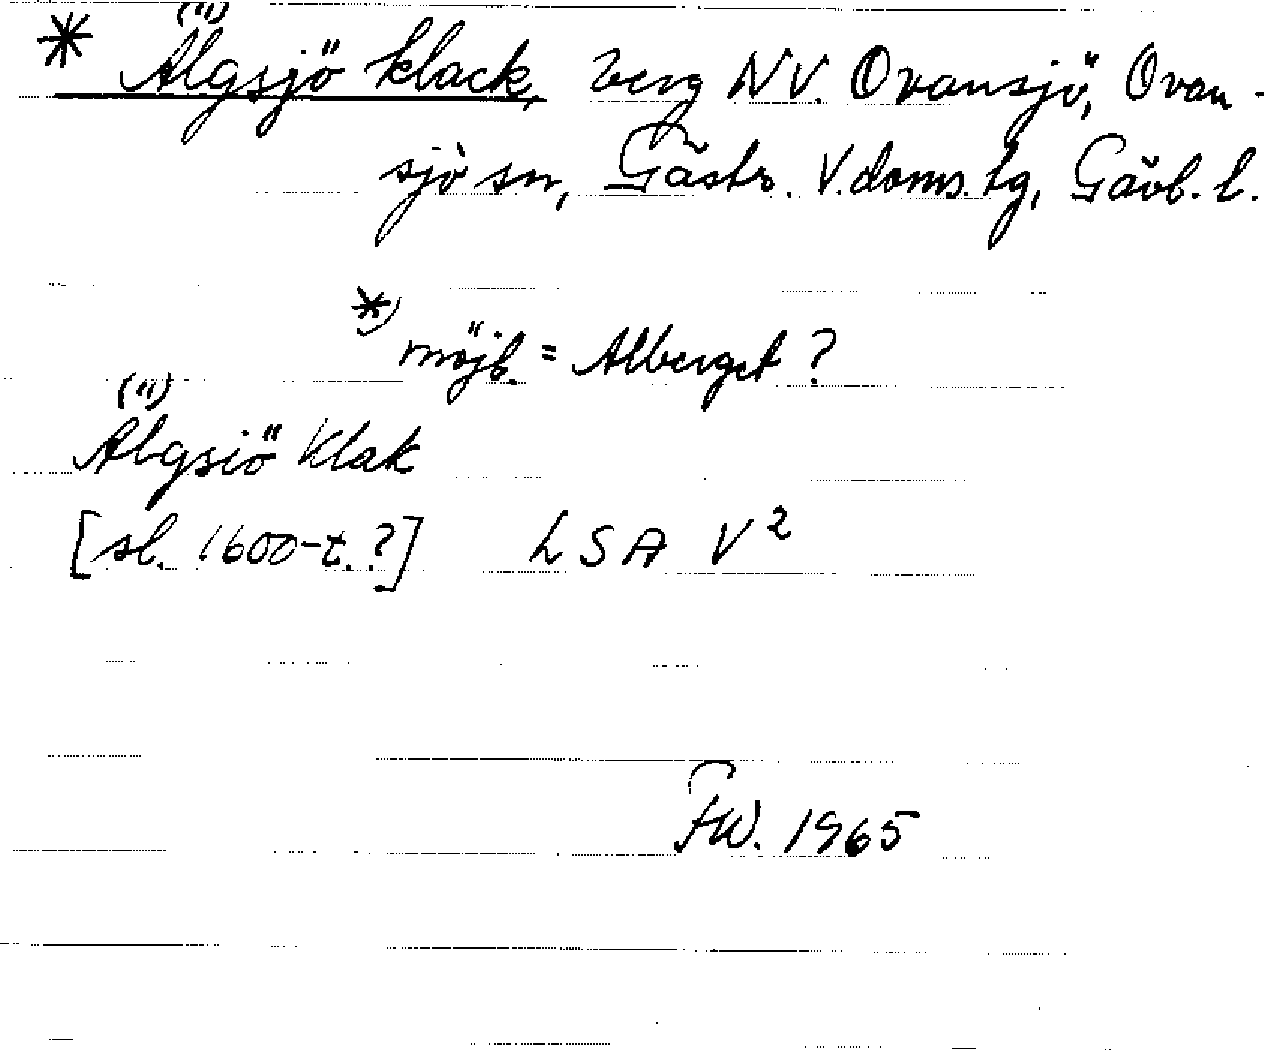 * (")
Älgsjö klack, berg NV. Ovansjö, Ovan-
sjö sn, Gästr. V. doms. tg, Gävb. l.
*) möjl. = Alberget ?
(")
Älgsiö Klak
[sl. 1600-t.?] LSA V²
FW. 1965